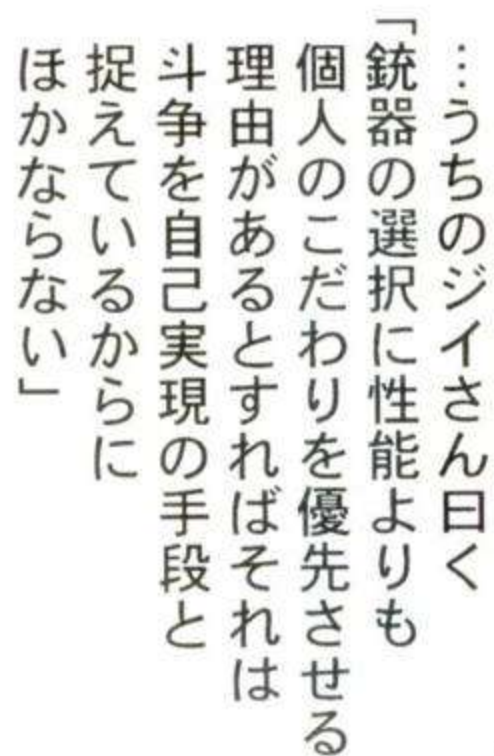 …うちのジイさん曰く
「銃器の選択に性能よりも
個人のこだわりを優先させる
理由があるとすればそれは
斗争を自己実現の手段と
捉えているからに
ほかならない」